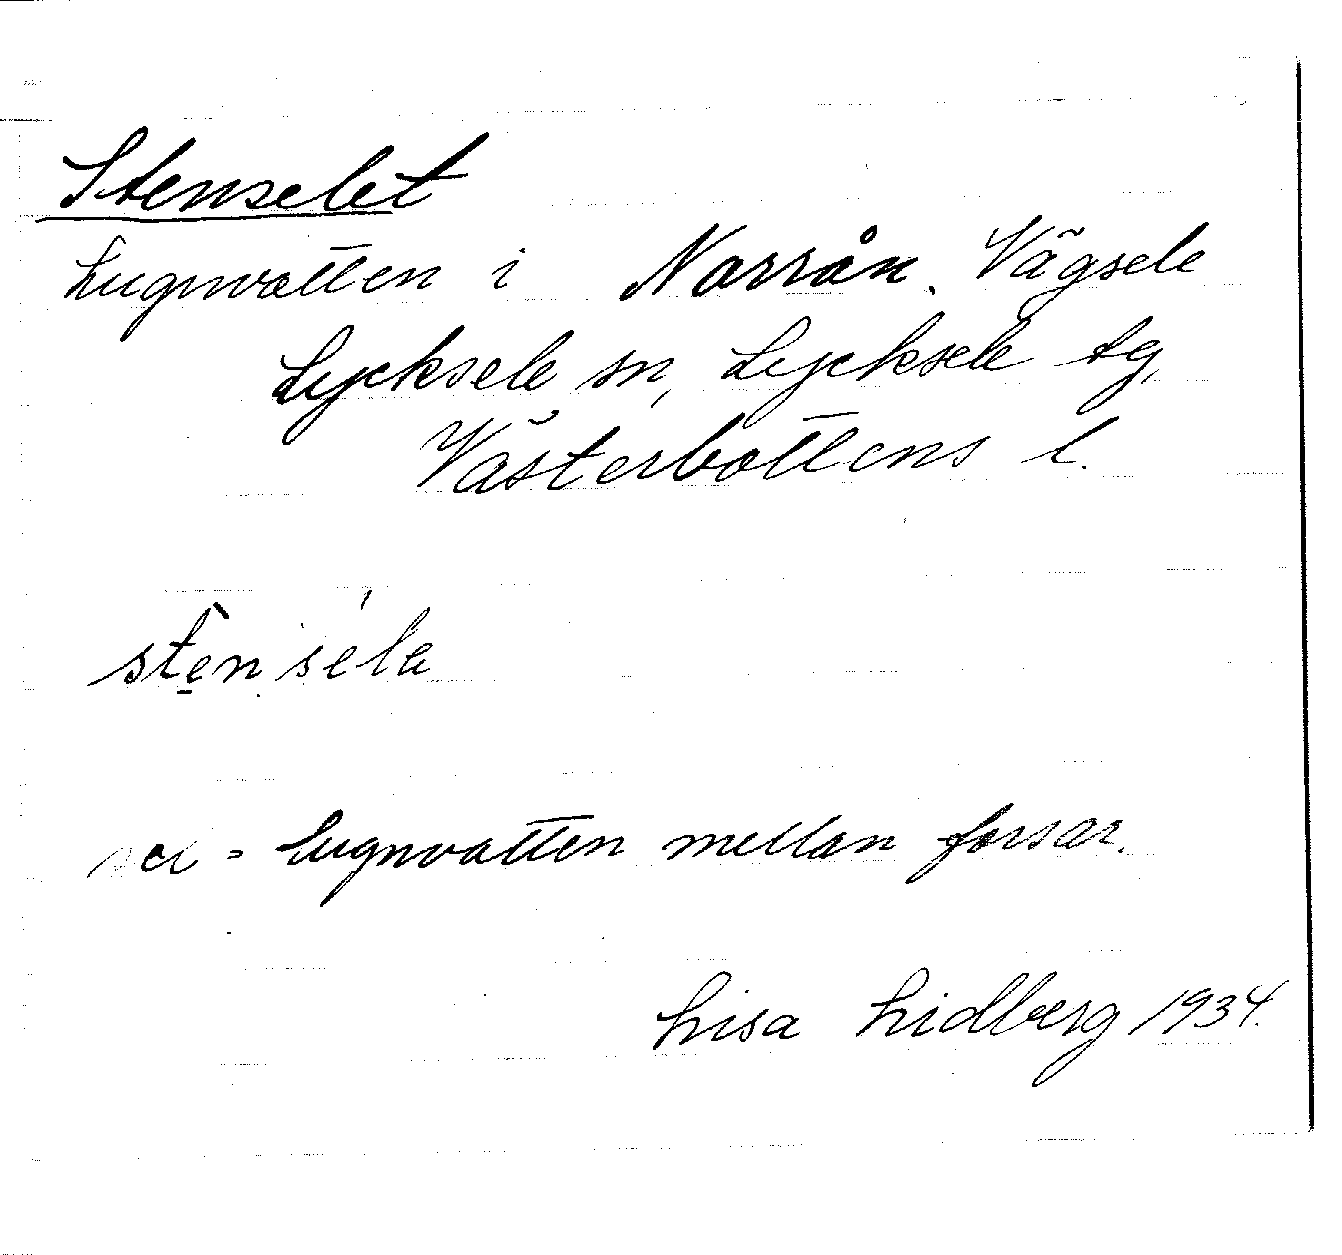 Stenselet
Lugnvatten i Norrån. Vägsele
Lycksele sn, Lycksele tg,
Västerbottens l.
stensela
sel = lugnvatten mellan forsar.
Lisa Lidberg 1934.